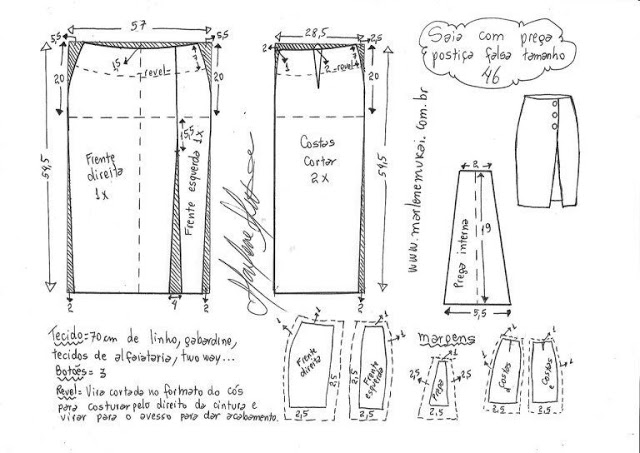 57
5,5
5,5
20
1,5
revel
7
20
54,5
5,5
Frente
direita
1x
Frente esquerda 1x
2
4
2
28,5
2,5
2
1
2
revel
3
20
Costas
Cortar
2x
54,5
2
Saia com prega
postiça falsa tamanho
46
www.marlenemukai.com.br
2
Prega interna
19
5,5
Tecido=70cm de linho, gabardine,
tecidos de alfaiataria, two way...
Botões= 3
Revel= Vira cortada no formato do cós
para costurar pelo direito da cintura e
virar para o avesso para dar acabamento.
1
1
Frente
direita
2,5
2,5
1
1
Frente
esquerda
2,5
2,5
margens
1
Prega
2,5
2,5
2,5
1
1
Costas d
2,5
1
1
Costas e
2,5